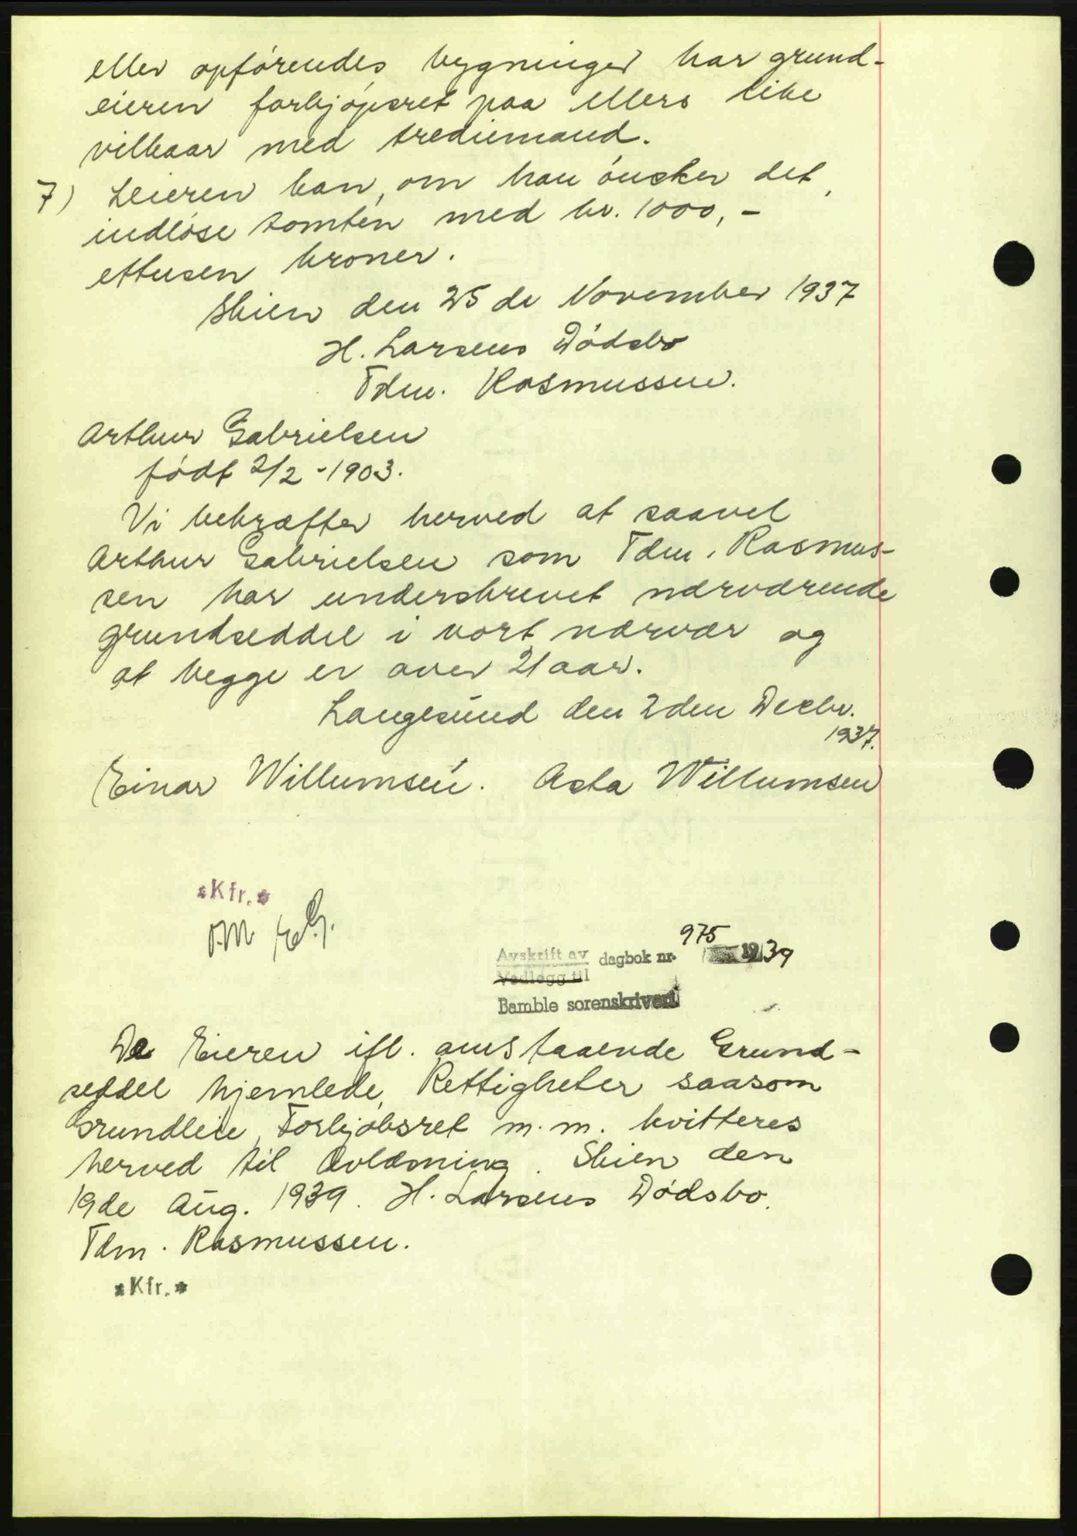 eller opförendes bygninger har grund-
eieren forkjöpsret paa ellers like
vilkaar med trediemand.
7) Leieren kan, om han önsker det,
indlöse tomten med kr. 1000,-
ettusen kroner.
Skien den 25 de November 1937
H. Larsens Dödsbo
Tdm. Rasmussen.
Arthur Gabrielsen
födt 2/2 -1903.
Vi bekræfter herved at saavel
Arthur Gabrielsen som Tdm. Rasmus-
sen har underskrevet nærværende
grundseddel i vort nærvær og
at begge er over 21 aar.
Langesund den 2den Decbr.
1937.
Einar Willumsen. Asta Willumsen
*Kfr.*
975
Avskrift av dagbok nr. 1939
Vedlegg til
Bamble sorenskriveri
De Eieren ifl. omstaaende Grund-
seddel hjemlede Rettigheter saasom
Grundleie, Forkjöbsret m.m. kvitteres
herved til Avlæsning. Skien den
19de Aug. 1939. H. Larsens Dödsbo.
Tdm. Rasmussen.
*Kfr.*